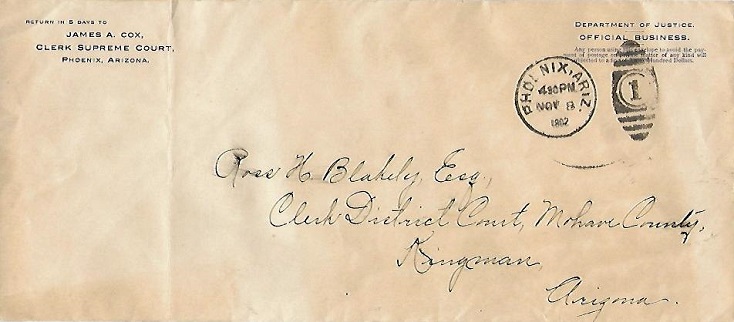 RETURN IN 5 DAYS TO
JAMES A. COX,
CLERK SUPREME COURT,
PHOENIX, ARIZONA.
DEPARTMENT OF JUSTICE.
OFFICIAL BUSINESS.
Any person using this envelope to avoid the pay-
ment of postage on private matter of any kind will
be subjected to a fine of Three Hundred Dollars.
PHOENIX, ARIZ.
4 30 PM
NOV 8
1902
1
Ross H. Blakely, Esq.,
Clerk District Court, Mohave County,
Kingman,
Arizona.